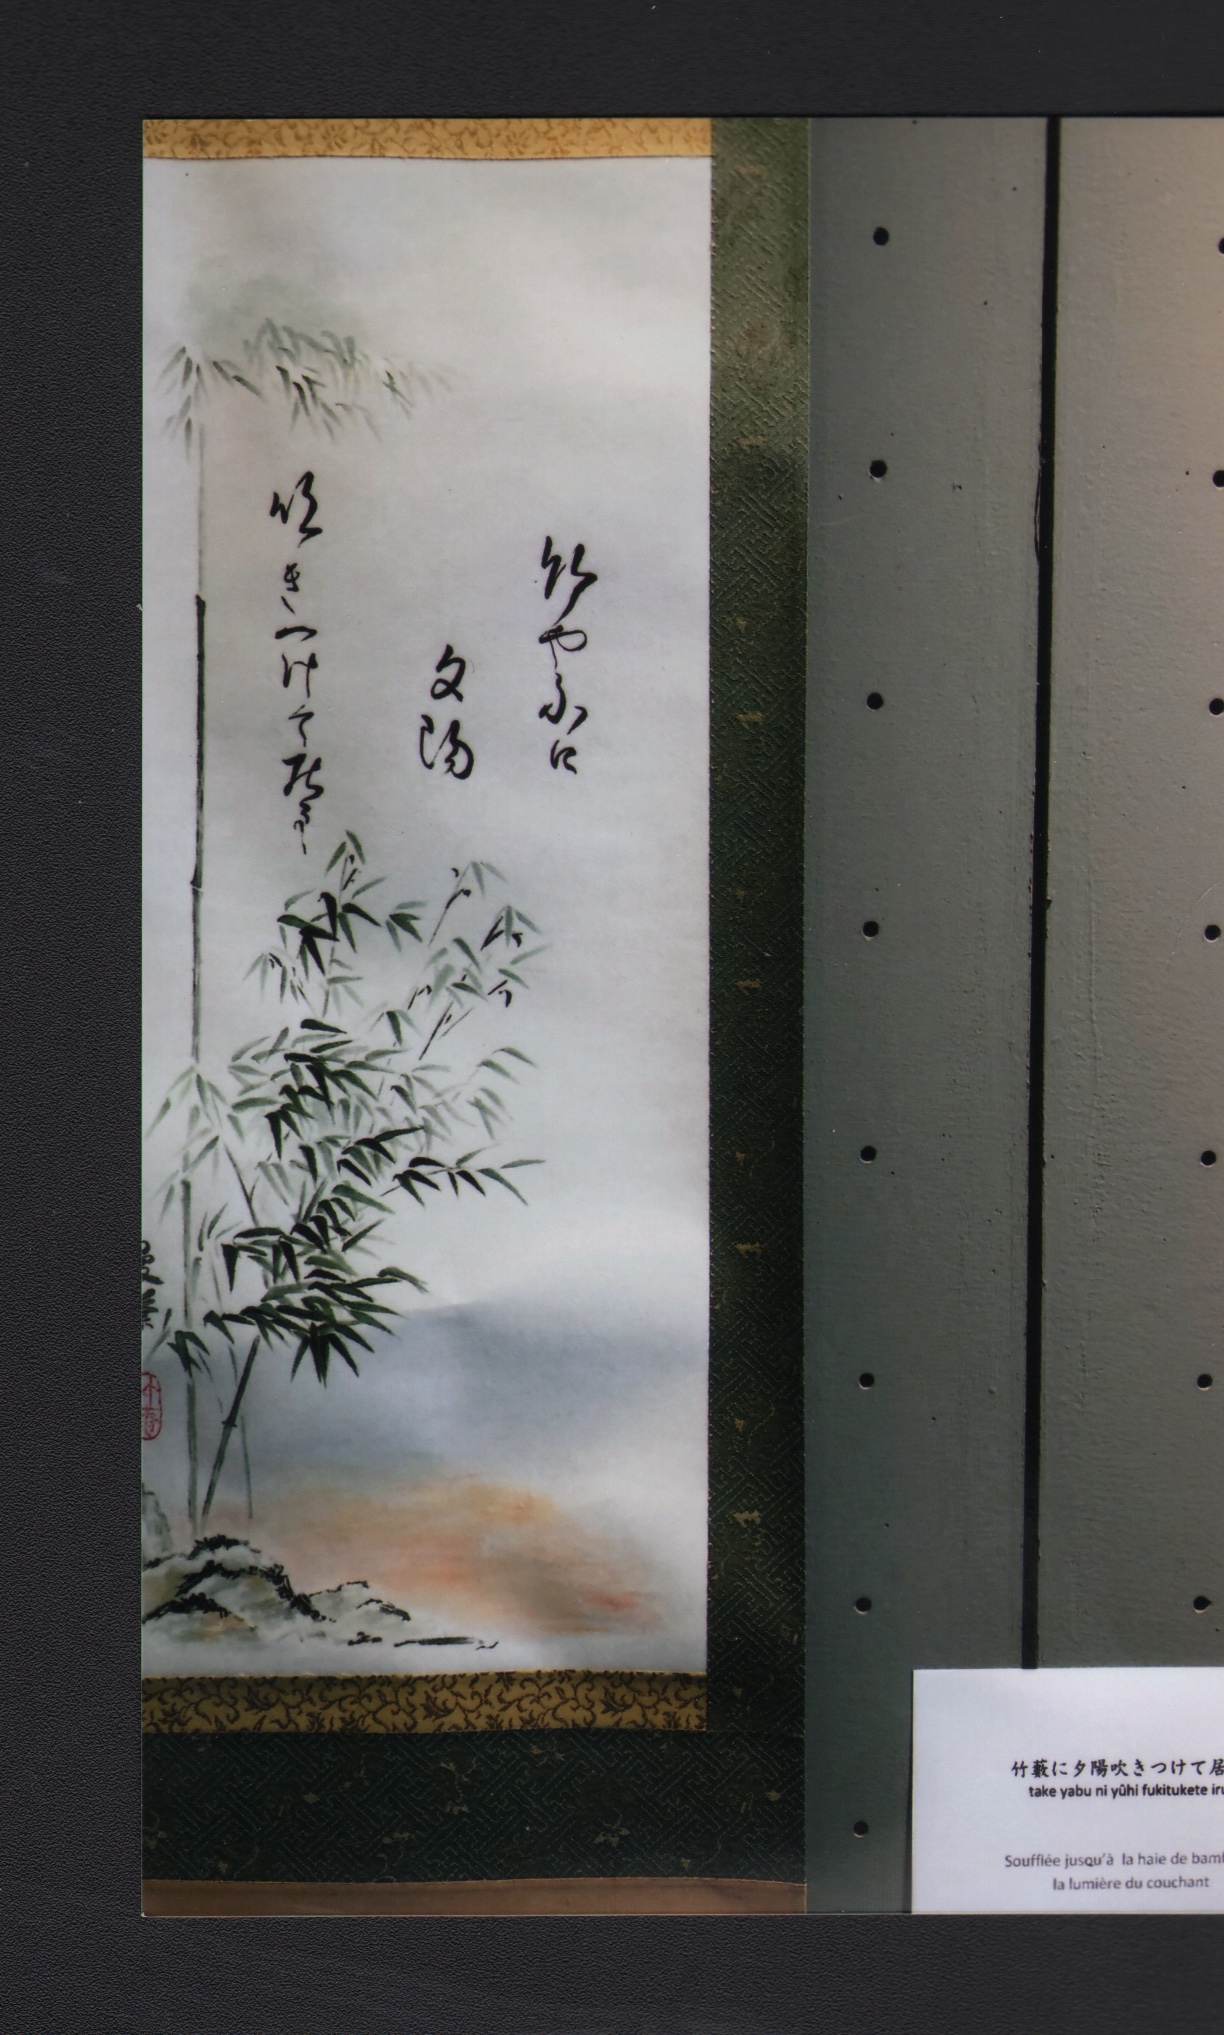 竹やふに
夕陽
吹きつけて居
竹藪に夕陽吹きつけて居
take yabu ni yûhi fukitukete iru
Soufflée jusqu'à la haie de bamb
la lumière du couchant